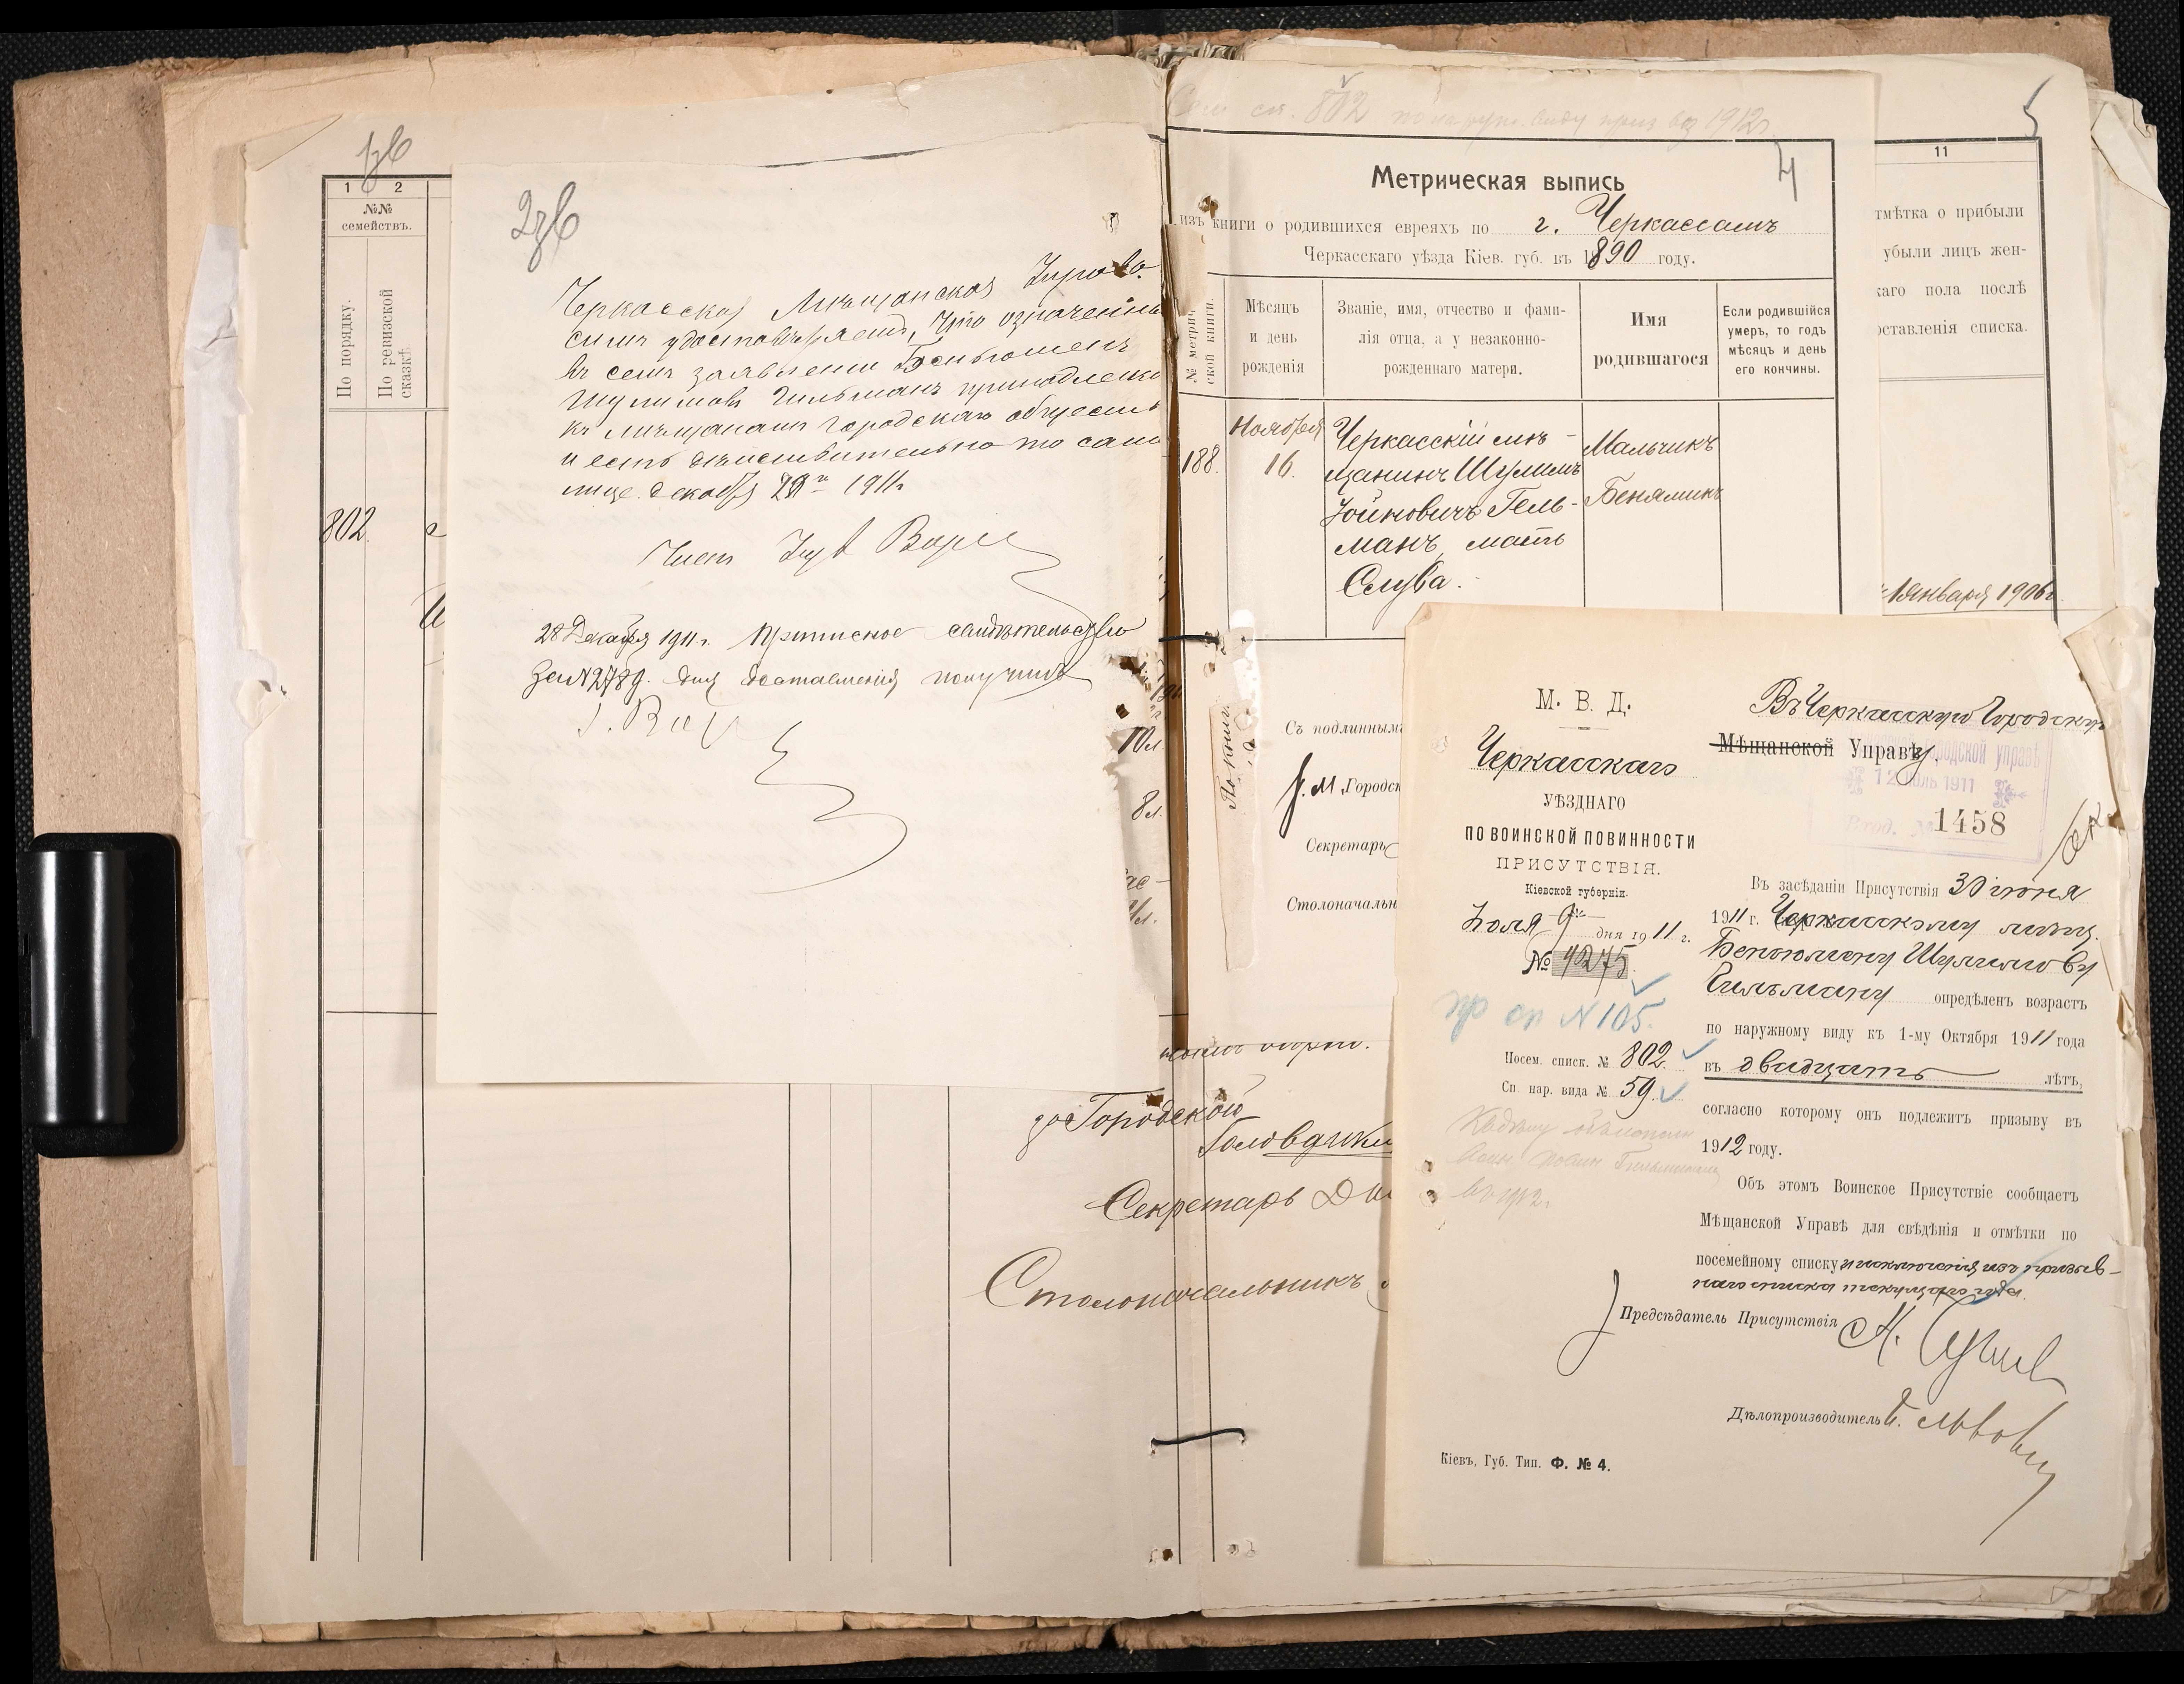 1зв
1 2
№№
семействъ.
По порядку.
По ревизской
сказкѣ
802
2зв
Черкасская Мѣщанская Управа
симъ удостовѣряетъ, что означенны
въ семъ заявленіи Беньюменъ
Шулимовъ Гильманъ принадлежи
къ мѣщанамъ городскаго обществ
и есть дѣйствительно то само
лице. Декабря 29 1911г
Член Упр
28 Декабря 1911 г. Приписное свидѣтельство
за №2789. для доставленія получилъ
10л.
8л.
Городской
Голова
Секретарь
Столоначальникъ
802 по наружн. виду приз въ 1912г.
4
Метрическая выпись
изъ книги о родившихся евреяхъ по г. Черкассамъ
Черкасскаго уѣзда Кіев. губ. въ 1890 году.
№ метрич
ской книги.
Мѣсяцъ
и день
рожденія
Званіе, имя, отчество и фами-
лія отца, а у незаконно-
рожденнаго матери.
Имя
родившагося
Если родившійся
умеръ, то годъ
мѣсяцъ и день
его кончины.
188.
Ноября
16.
Черкасскій мѣ-
щанинъ Шулимъ
Іойновичъ Гель-
манъ, мать
Слува.
Мальчикъ
Бенямин
Съ подлиннымъ
Городск
Секретарь
Столоначальн
5
11
тмѣтка о прибыли
убыли лицъ жен-
каго пола послѣ
оставленія списка.
1 января 1906г.
М. В. Д.
Черкасскаго
УѢЗДНАГО
ПО ВОИНСКОЙ ПОВИННОСТИ
ПРИСУТСТВІЯ.
Кіевской губерніи.
Іюля 9 дня 1911 г.
№ 4275
пр сп №105.
Посем. списк. № 802.
Сп. нар. вида № 59.
въ 1912.
Въ Черкасскую Городскую
Мѣщанской Управѣу.
одской управѣ
12 юль 1911
Вход. № 1458
Въ засѣданіи Присутствія 30 іюня
1911 г. Черкасскому мѣщ.
Беньюмену Шулимову
Гильману опредѣленъ возрастъ
по наружному виду къ 1-му Октября 1911 года
въ двадцать лѣтъ,
согласно которому онъ подлежитъ призыву въ
1912 году.
Объ этомъ Воинское Присутствіе сообщаетъ
Мѣщанской Управѣ для свѣдѣнія и отмѣтки по
посемейному списку и исключенія изъ призыв-
наго списка текущаго года.
Предсѣдатель Присутствія
Дѣлопроизводитель
Кіевъ, Губ. Тип. Ф. № 4.